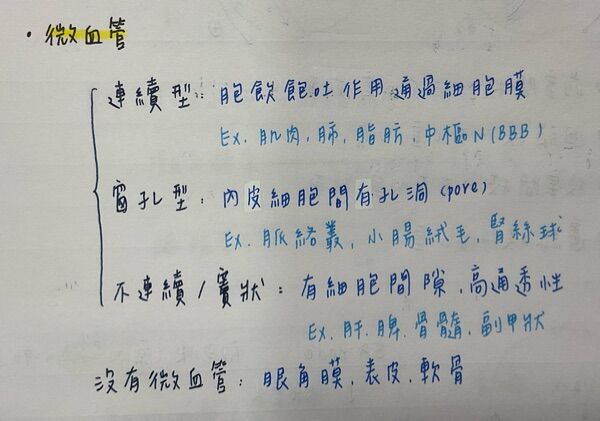 • 微血管
連續型：胞飲飽吐作用通過細胞膜
Ex. 肌肉, 肺, 脂肪, 中樞N(BBB)
窗孔型：內皮細胞間有孔洞 (pore)
Ex. 脈絡叢, 小腸絨毛, 腎絲球
不連續/竇狀：有細胞間隙, 高通透性
Ex. 肝. 脾. 骨髓, 副甲狀
沒有微血管：眼角膜, 表皮, 軟骨